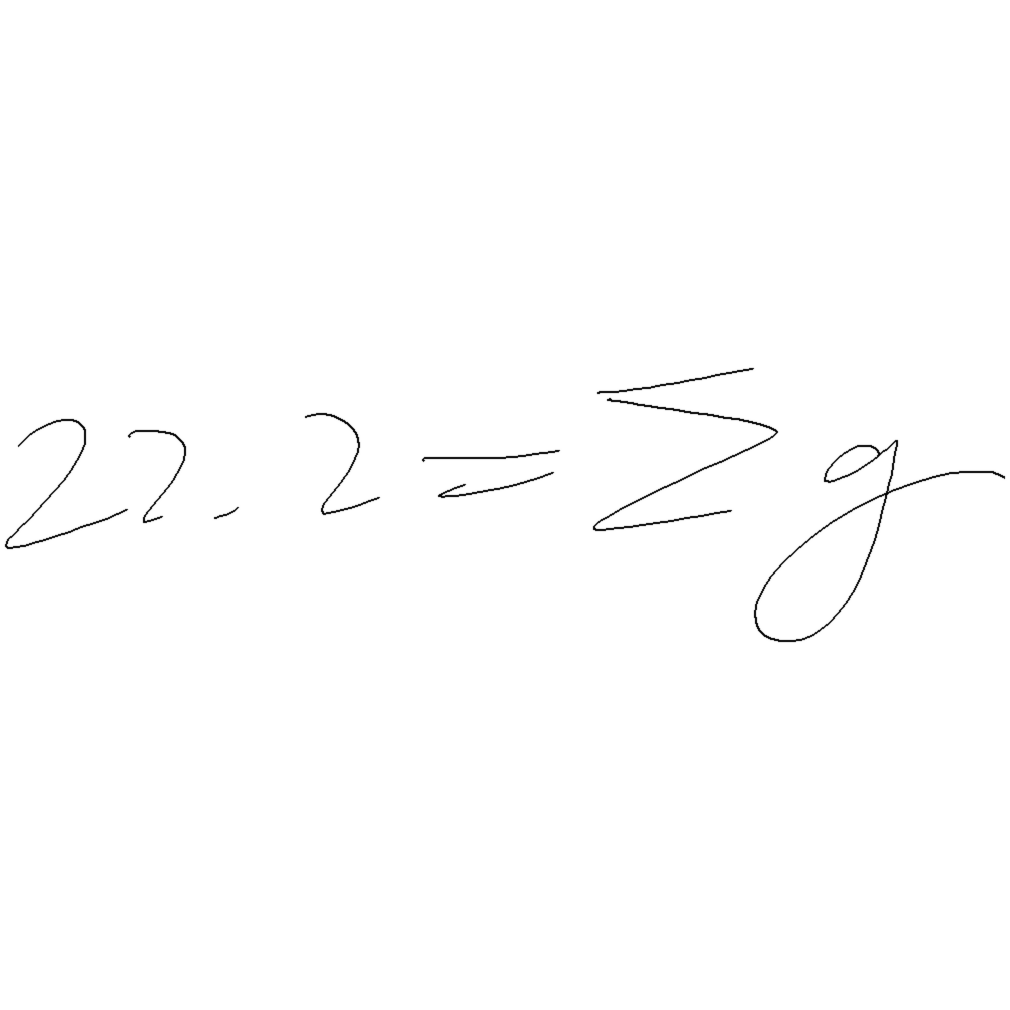 22.2=∑g